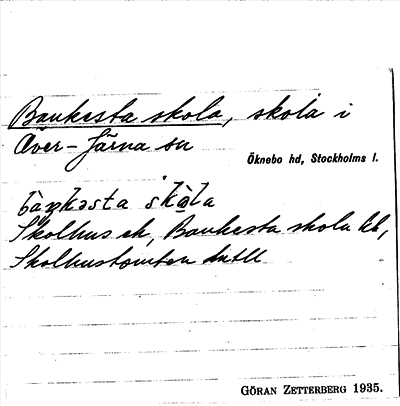 Bankesta skola, skola i
Över-Järna sn
Öknebo hd, Stockholms l.
bàŋkəsta skò̱la
Skolhus ek, Bankesta skola kb,
Skolhustomten htll
GÖRAN ZETTERBERG 1935.